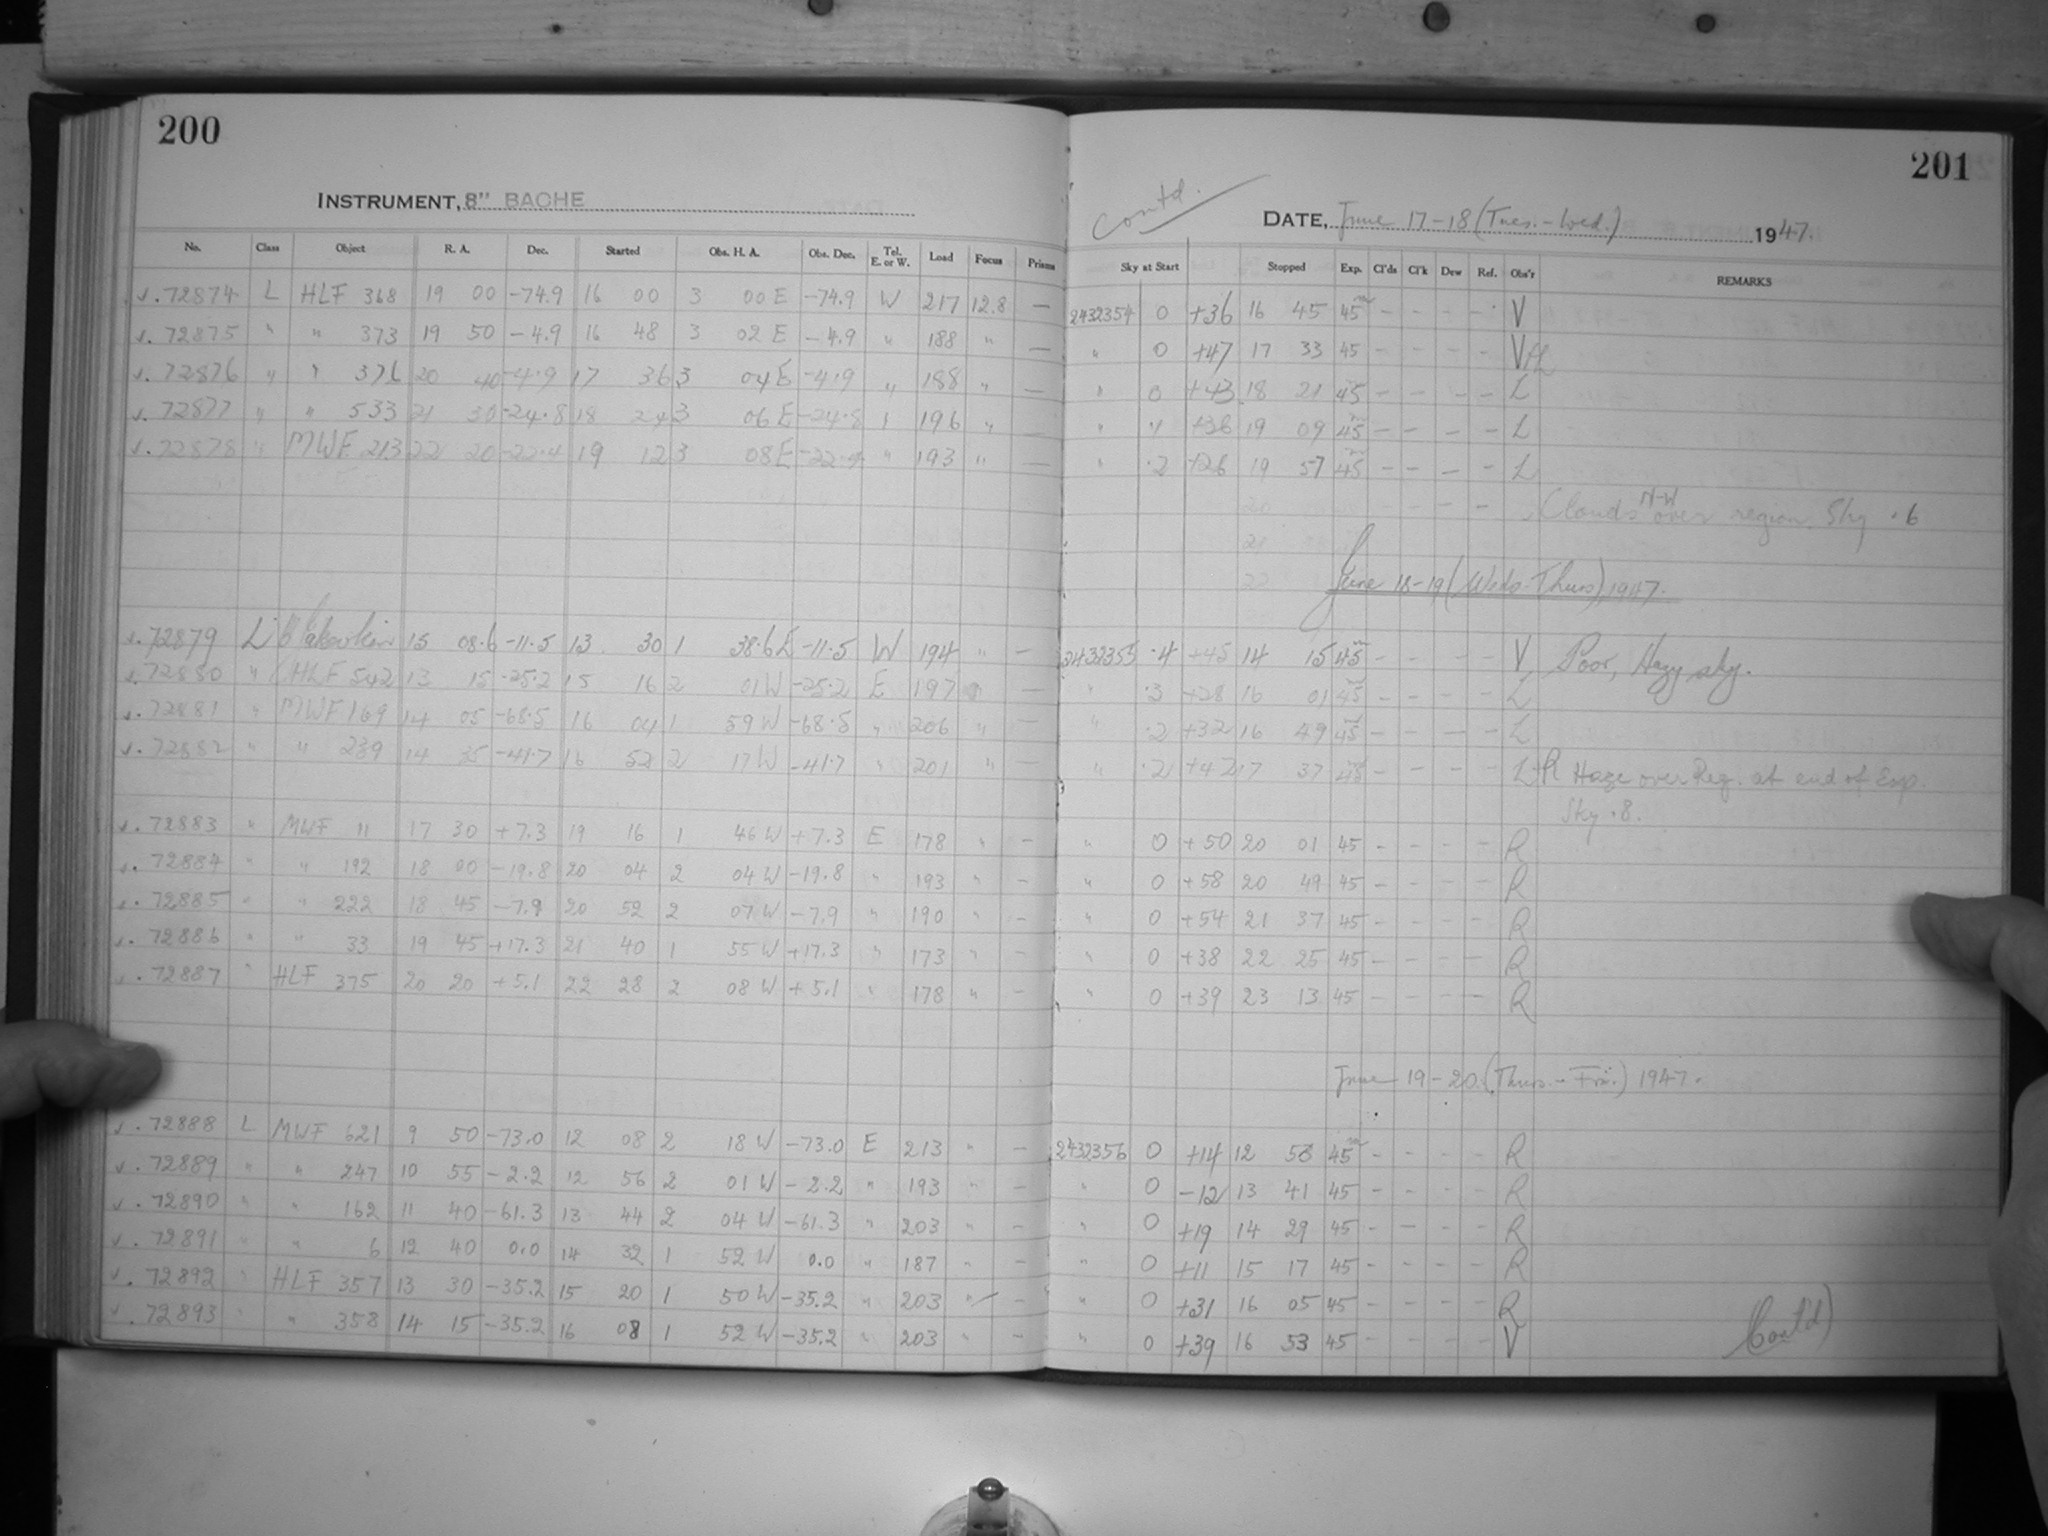 200
201
INSTRUMENT, 8" BACHE
Contd. DATE, June 17-18 (Tues.-Wed.) 1947.
No. Class Object R. A. Dec. Started Obs. H. A. Obs. Dec. Tel. E. or W. Load Focus Prisms Sky at Start Stopped Exp. Cl'ds Cl'k Dew Ref. Obs'r REMARKS
√. 72874 L HLF 368 19 00 -74.9 16 00 3 00 E -74.9 W 217 12.8 — 2432354 0 +36 16 45 45m - - - - V
√. 72875 " " 373 19 50 -4.9 16 48 3 02 E -4.9 " 188 " — " 0 +47 17 33 45 - - - - V/L
√. 72876 " " 376 20 40 -4.9 17 36 3 04 E -4.9 " 188 " — " 0 +43 18 21 45m - - - - L
√. 72877 " " 533 21 30 -24.8 18 24 3 06 E -24.8 " 196 " — " " +36 19 09 45m - - - - L
√. 72878 " MWF 213 22 20 -22.4 19 12 3 08 E -22.4 " 193 " — " .2 +26 19 57 45m - - - - L
20 - - - Clouds N-W over region. Sky .6
21
22 June 18-19 (Weds-Thurs) 1947.
√. 72879 L 15 08.6 -11.5 13 30 1 38.6 E -11.5 W 194 " — 2432355 .4 +45 14 15 45m - - - - V Poor, Hazy sky.
√. 72880 " HLF 542 13 15 -25.2 15 16 2 01 W -25.2 E 197 — " .3 +28 16 01 45m - - - - L
√. 72881 " MWF 169 14 05 -68.5 16 04 1 59 W -68.5 " 206 " — " .2 +32 16 49 45m - - - - L
√. 72882 " " 239 14 35 -41.7 16 52 2 17 W -41.7 " 201 " — " .2 +42 17 37 45m - - - - L+R Haze over Reg. at end of Exp.
Sky .8.
√. 72883 " MWF 11 17 30 +7.3 19 16 1 46 W +7.3 E 178 " - " 0 +50 20 01 45 - - - - R
√. 72884 " " 192 18 00 -19.8 20 04 2 04 W -19.8 " 193 " - " 0 +58 20 49 45 - - - - R
√. 72885 " " 222 18 45 -7.9 20 52 2 07 W -7.9 " 190 " - " 0 +54 21 37 45 - - - - R
√. 72886 " " 33 19 45 +17.3 21 40 1 55 W +17.3 " 173 " - " 0 +38 22 25 45 - - - - R
√. 72887 " HLF 375 20 20 +5.1 22 28 2 08 W +5.1 " 178 " - " 0 +39 23 13 45 - - - - R
June 19-20 (Thurs.-Fri.) 1947.
√. 72888 L MWF 621 9 50 -73.0 12 08 2 18 W -73.0 E 213 " - 2432356 0 +14 12 53 45m - - - - R
√. 72889 " " 247 10 55 -2.2 12 56 2 01 W -2.2 " 193 " - " 0 -12 13 41 45 - - - - R
√. 72890 " " 162 11 40 -61.3 13 44 2 04 W -61.3 " 203 " - " 0 +19 14 29 45 - - - - R
√. 72891 " " 6 12 40 0.0 14 32 1 52 W 0.0 " 187 " - " 0 +11 15 17 45 - - - - R
√. 72892 " HLF 357 13 30 -35.2 15 20 1 50 W -35.2 " 203 " - " 0 +31 16 05 45 - - - - R
√. 72893 " " 358 14 15 -35.2 16 08 1 52 W -35.2 " 203 " - " 0 +39 16 53 45 - - - - V
(Cont'd)